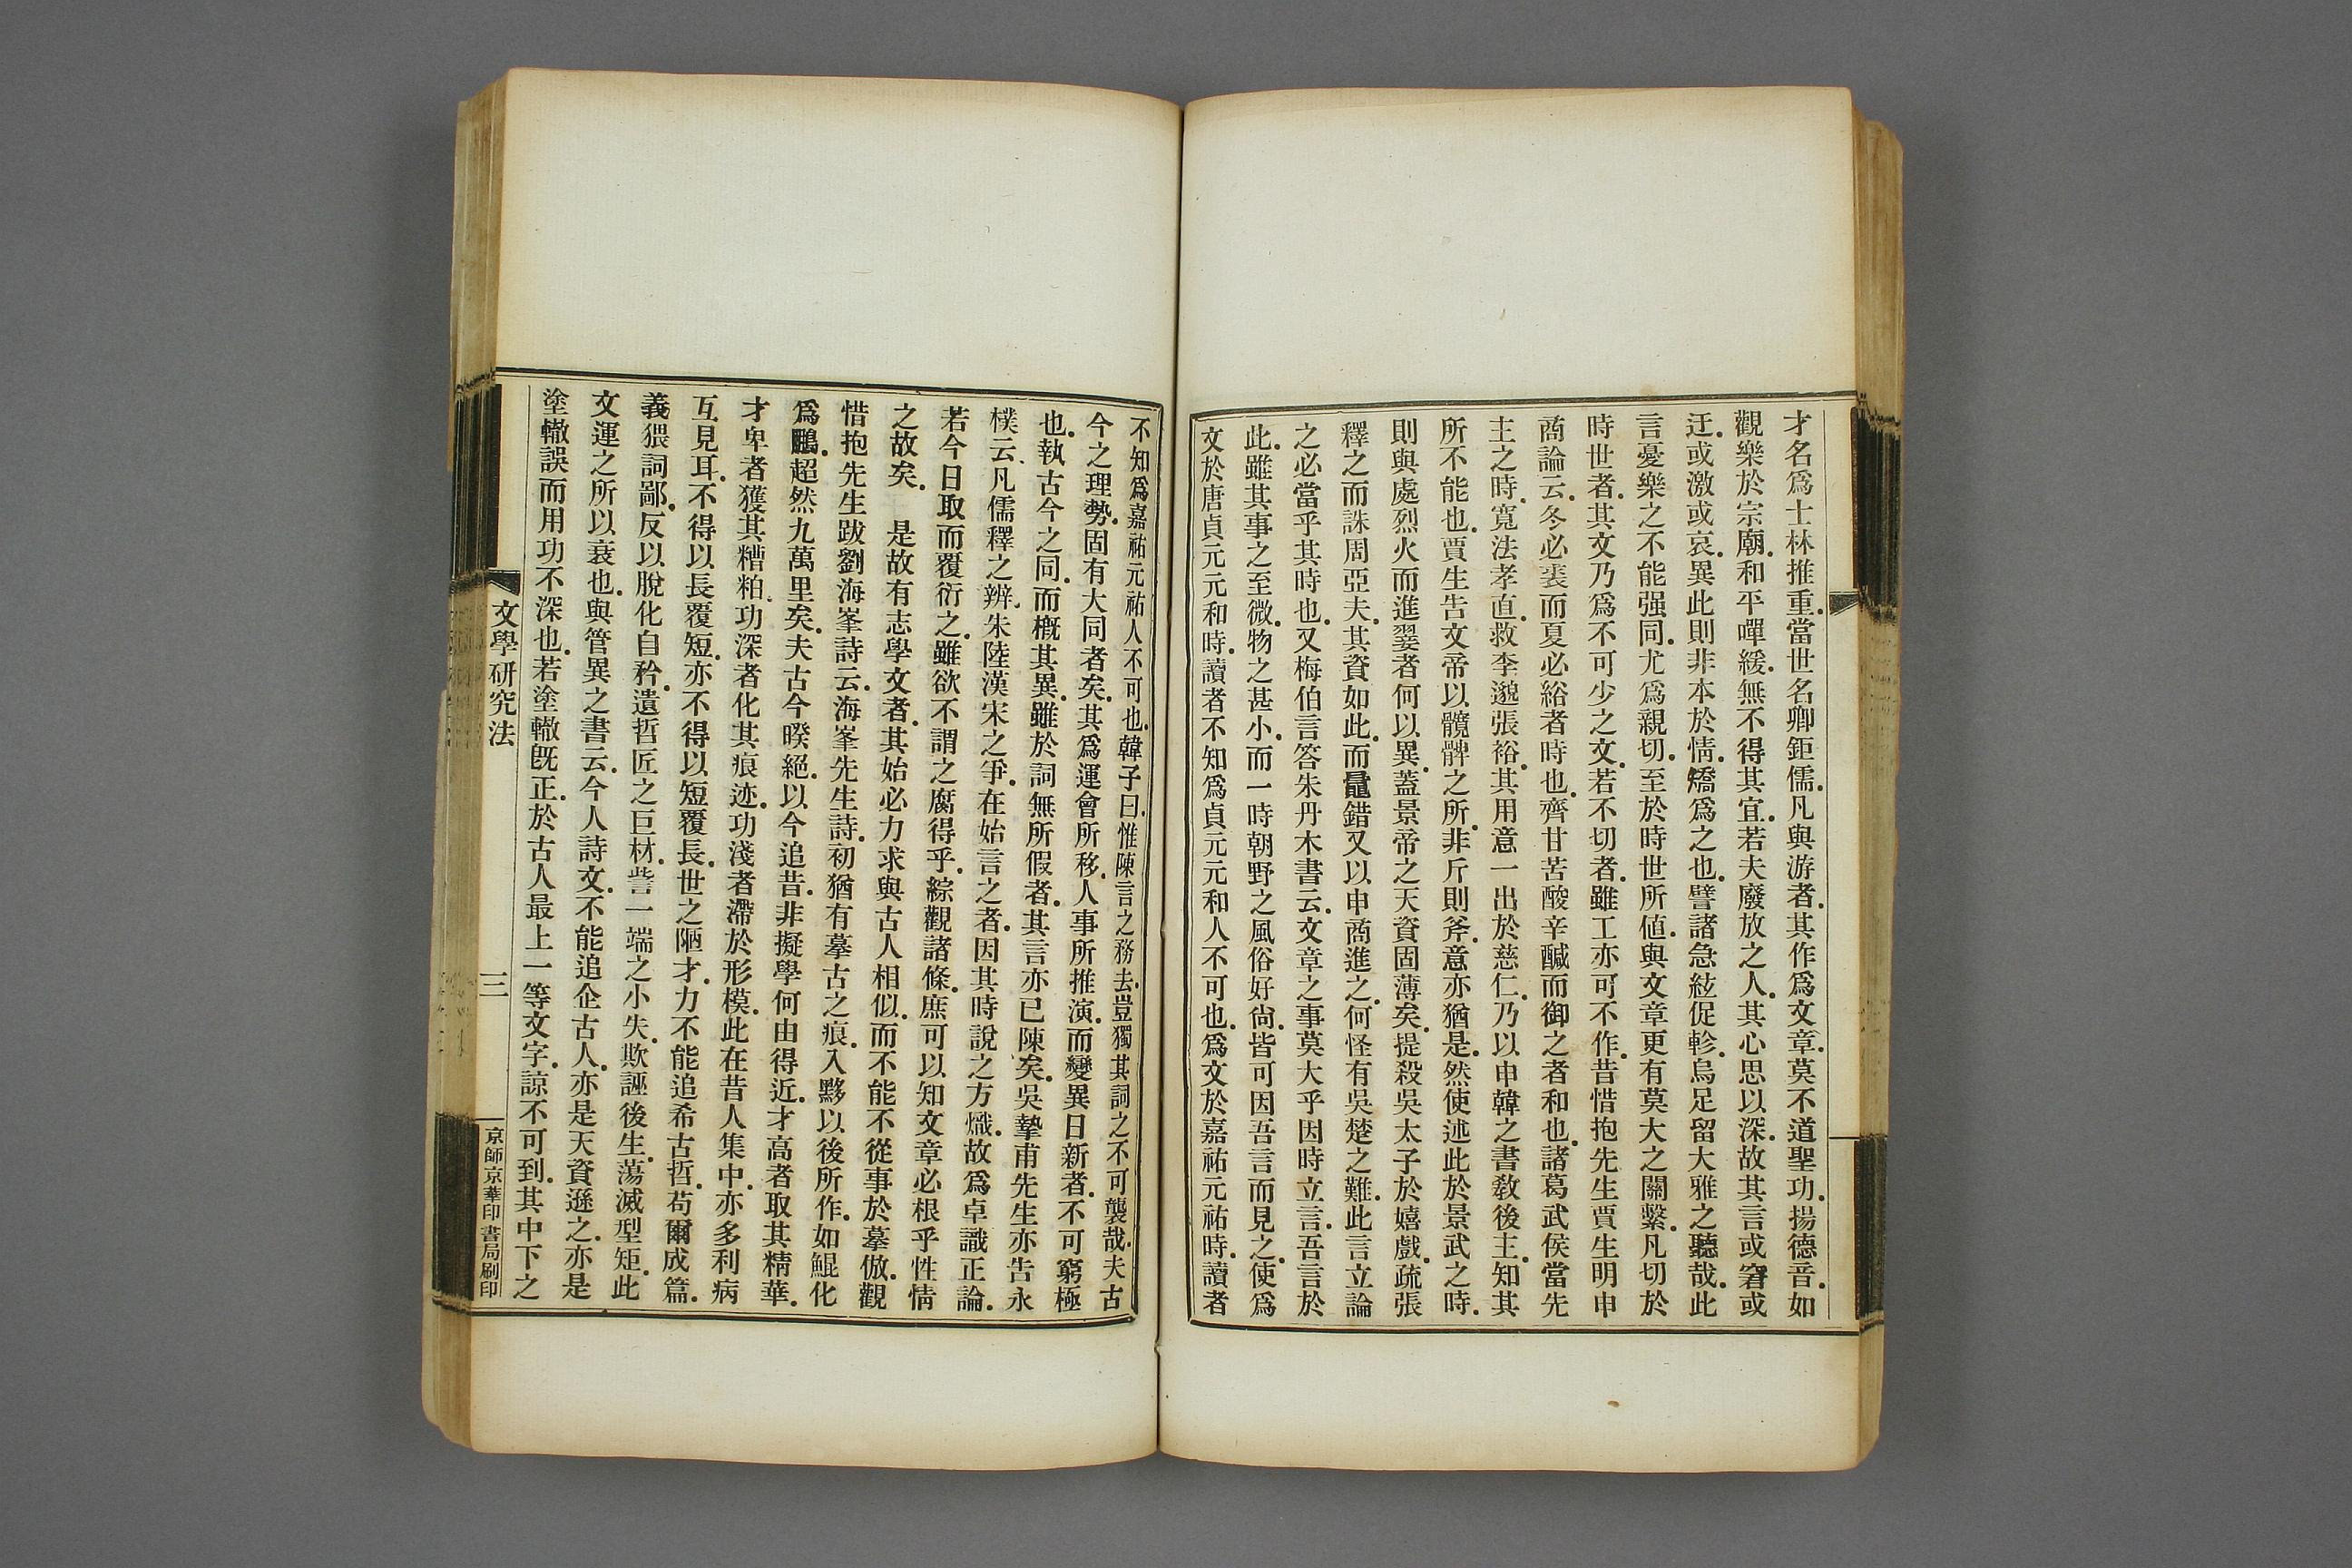 才名爲士林推重.當世名卿鉅儒.凡與游者.其作爲文章.莫不道聖功.揚德音.如
觀樂於宗廟.和平嘽緩.無不得其宜.若夫廢放之人.其心思以深.故其言或窘或
迂.或激或哀.異此則非本於情.矯爲之也.譬諸急絃促軫.烏足留大雅之聽哉.此
言憂樂之不能强同.尤爲親切.至於時世所値.與文章更有莫大之關繫.凡切於
時世者.其文乃爲不可少之文.若不切者.雖工亦可不作.昔惜抱先生賈生明申
商論云.冬必裘而夏必綌者時也.齊甘苦酸辛醎而御之者和也.諸葛武侯當先
主之時.寬法孝直.救李邈張裕.其用意一出於慈仁.乃以申韓之書敎後主.知其
所不能也.賈生告文帝以髖髀之所.非斤則斧.意亦猶是.然使述此於景武之時.
則與處烈火而進翣者何以異.蓋景帝之天資固薄矣.提殺吳太子於嬉戲.疏張
釋之而誅周亞夫.其資如此.而鼂錯又以申商進之.何怪有吳楚之難.此言立論
之必當乎其時也.又梅伯言答朱丹木書云.文章之事莫大乎因時立言.吾言於
此.雖其事之至微.物之甚小.而一時朝野之風俗好尙.皆可因吾言而見之.使爲
文於唐貞元元和時.讀者不知爲貞元元和人不可也.爲文於嘉祐元祐時.讀者
不知爲嘉祐元祐人不可也.韓子曰.惟陳言之務去.豈獨其詞之不可襲哉.夫古
今之理勢.固有大同者矣.其爲運會所移.人事所推演.而變異日新者.不可窮極
也.執古今之同.而槪其異.雖於詞無所假者.其言亦已陳矣.吳摯甫先生亦告永
樸云.凡儒釋之辨.朱陸漢宋之爭.在始言之者.因其時說之方熾.故爲卓識正論.
若今日取而覆衍之.雖欲不謂之腐得乎.綜觀諸條.庶可以知文章必根乎性情
之故矣.　是故有志學文者.其始必力求與古人相似.而不能不從事於摹倣.觀
惜抱先生跋劉海峯詩云.海峯先生詩.初猶有摹古之痕.入黟以後所作.如鯤化
爲鵬.超然九萬里矣.夫古今暌絕.以今追昔.非擬學何由得近.才高者取其精華.
才卑者獲其糟粕.功深者化其痕迹.功淺者滯於形模.此在昔人集中.亦多利病
互見耳.不得以長覆短.亦不得以短覆長.世之陋才.力不能追希古哲.苟爾成篇.
義猥詞鄙.反以脫化自矜.遺哲匠之巨材.訾一端之小失.欺誣後生.蕩滅型矩.此
文運之所以衰也.與管異之書云.今人詩文.不能追企古人.亦是天資遜之.亦是
塗轍誤而用功不深也.若塗轍旣正.於古人最上一等文字.諒不可到.其中下之
文學研究法
三
京師京華印書局刷印